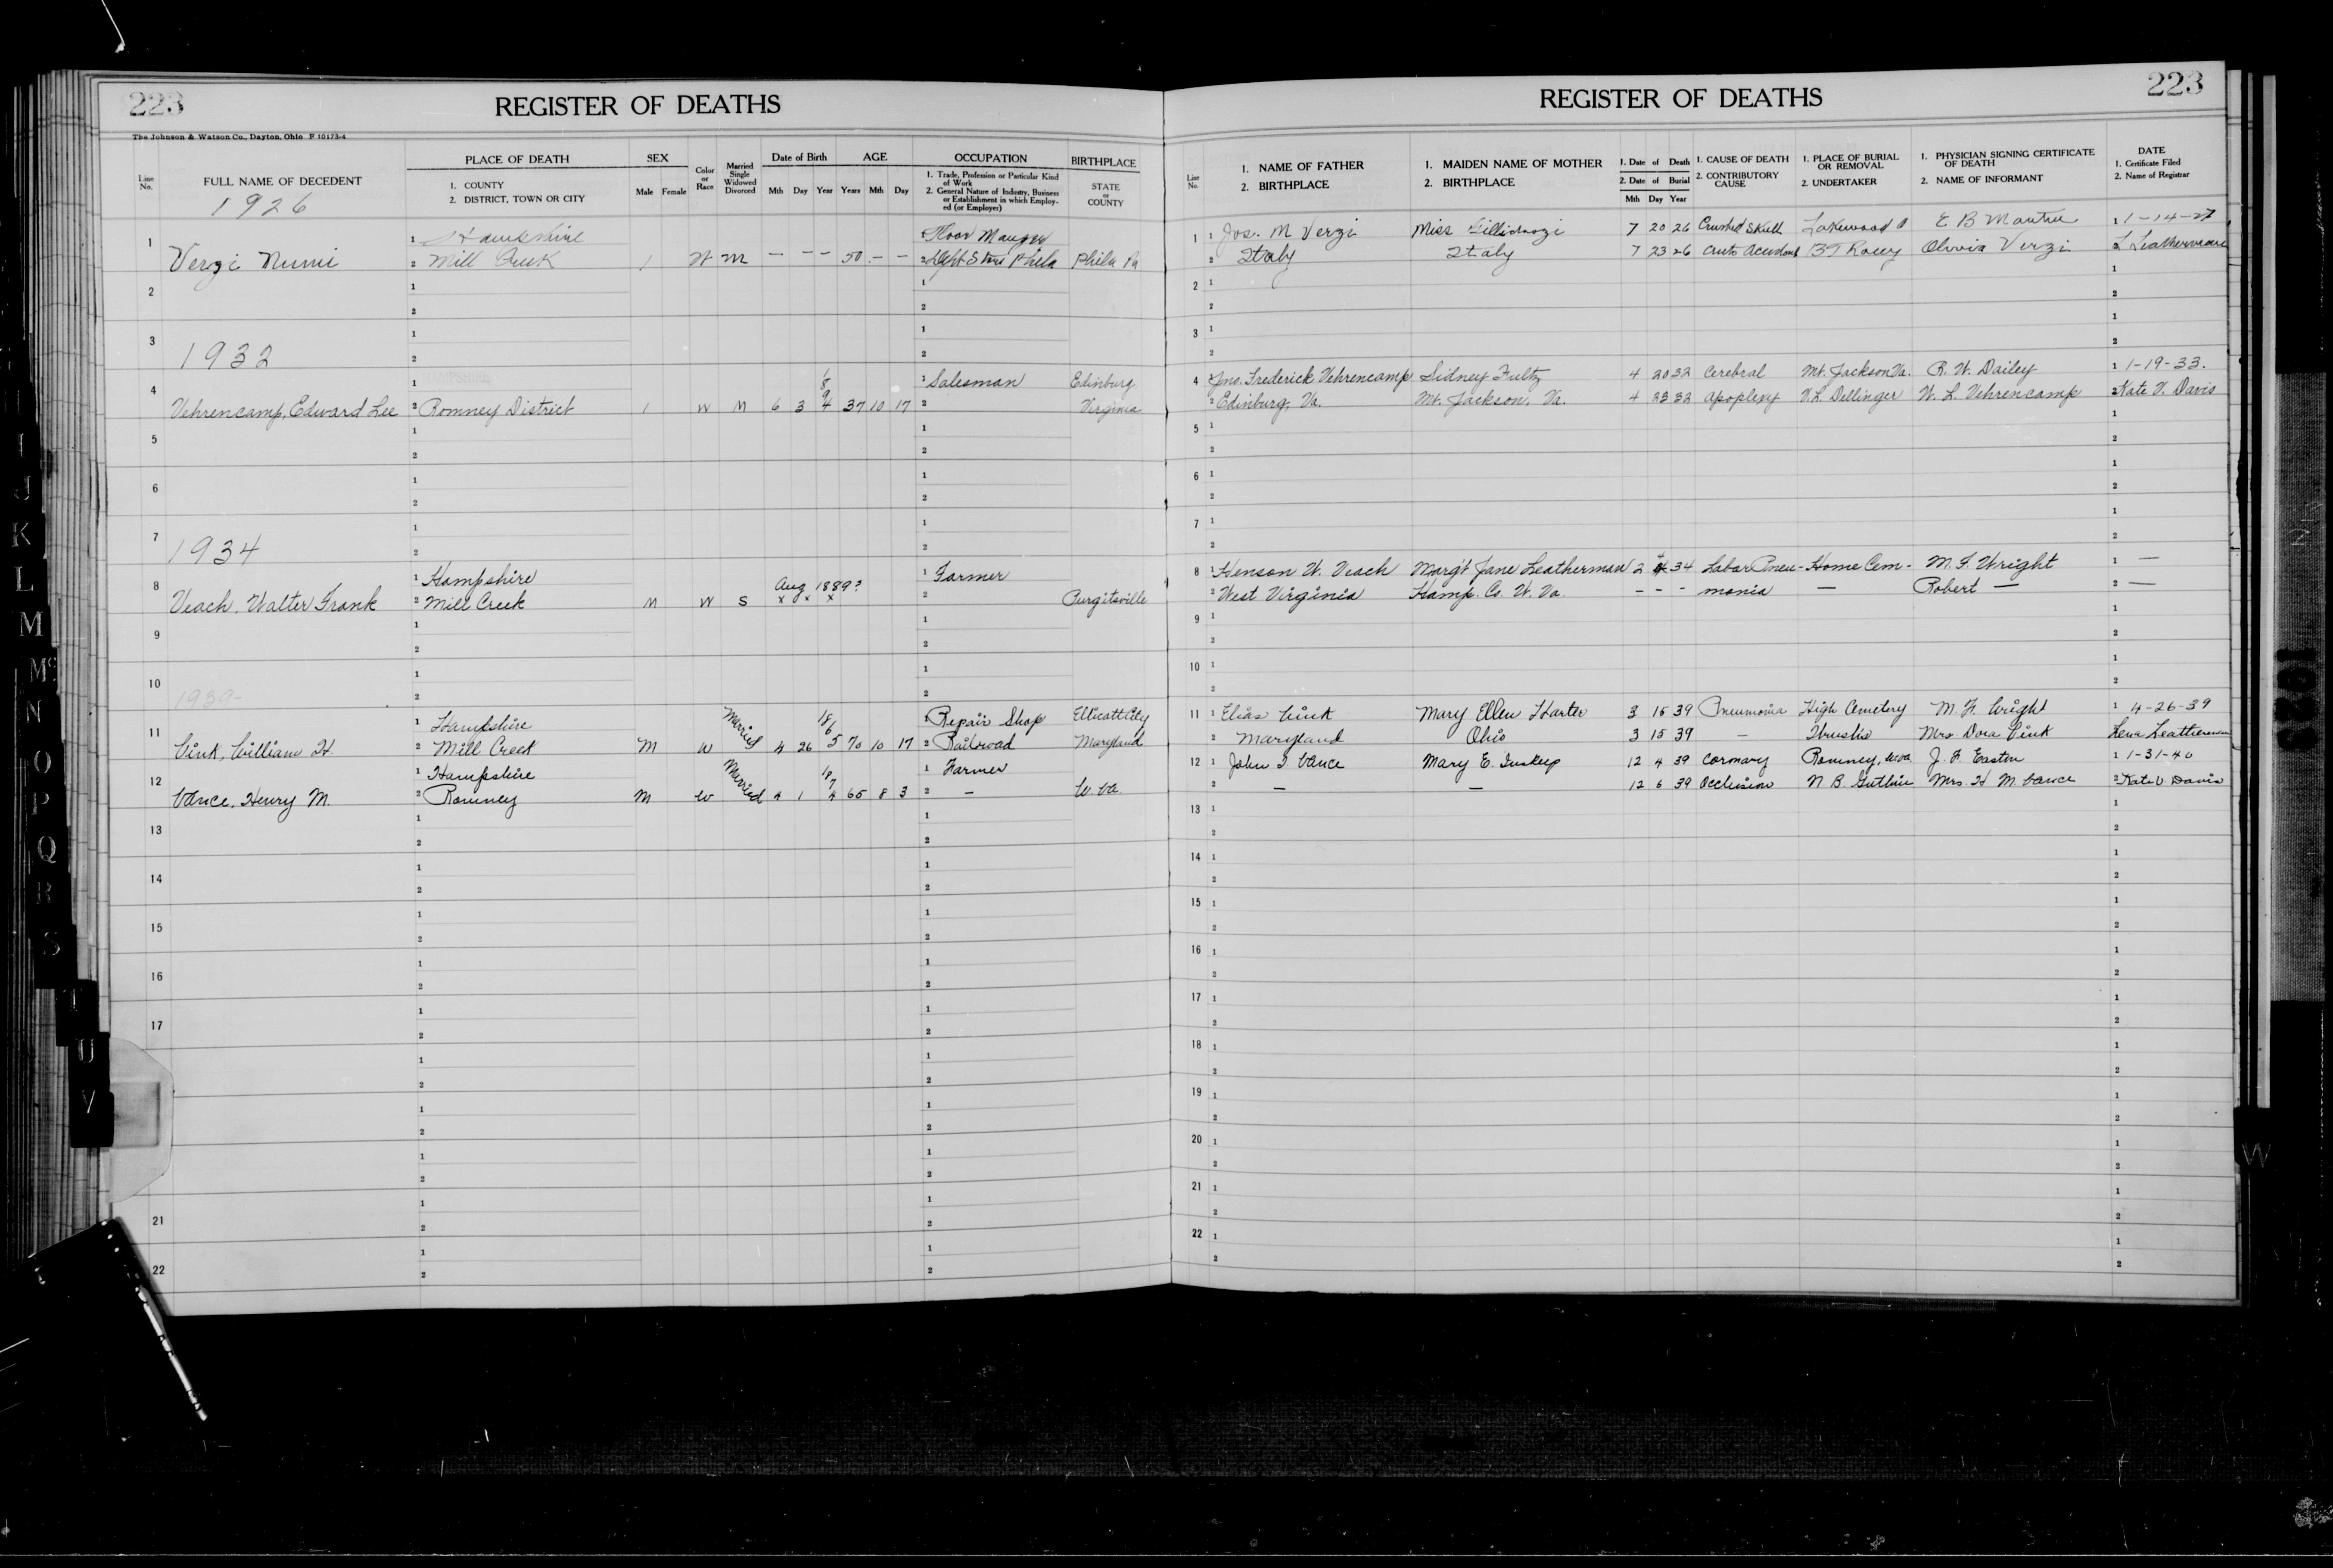 223
REGISTER OF DEATHS
The Johnson & Watson Co., Dayton, Ohio F 10173-4
Line No.
FULL NAME OF DECEDENT
1926
PLACE OF DEATH
1. COUNTY
2. DISTRICT, TOWN OR CITY
SEX
Male Female
Color or Race
Married Single Widowed Divorced
Date of Birth
Mth Day Year
AGE
Years Mth Day
OCCUPATION
1. Trade, Profession or Particular Kind of Work
2. General Nature of Industry, Business or Establishment in which Employed (or Employer)
BIRTHPLACE
STATE or COUNTY
1 Hampshire 1 Floor Manger
Verzi Numi 2 Mill Creek 1 W M — — — 50 — — 2 Dept Store Phila Phila Pa
2
3 1932
4 1 HAMPSHIRE 1 Salesman Edinburg
Vehrencamp, Edward Lee 2 Romney District 1 W M 6 3 1894 37 10 17 2 Virginia
5
6
7 1934
8 1 Hampshire Aug 1889? 1 Farmer
Veach, Walter Frank 2 Mill Creek M W S x x x 2 Purgitsville
9
10 1939-
11 1 Hampshire 1 Repair Shop Ellicott City
Vink, William H. 2 Mill Creek M W Married 4 26 1865 70 10 17 2 Railroad Maryland
12 1 Hampshire 1 Farmer
Vance, Henry M. 2 Romney M W Married 4 1 1874 65 8 3 2 — W. Va.
13
14
15
16
17
21
22
223
REGISTER OF DEATHS
Line No.
1. NAME OF FATHER
2. BIRTHPLACE
1. MAIDEN NAME OF MOTHER
2. BIRTHPLACE
1. Date of Death
2. Date of Burial
Mth Day Year
1. CAUSE OF DEATH
2. CONTRIBUTORY CAUSE
1. PLACE OF BURIAL OR REMOVAL
2. UNDERTAKER
1. PHYSICIAN SIGNING CERTIFICATE OF DEATH
2. NAME OF INFORMANT
DATE
1. Certificate Filed
2. Name of Registrar
1 1 Jos. M Verzi Miss 7 20 26 Crushed Skull Lakewood E B 1 1-14-27
2 Italy Italy 7 23 26 Auto Accident B T Racey Olivia Verzi L Leatherman
2
3
4 1 Jno. Frederick Vehrencamp Sidney Fultz 4 20 32 Cerebral Mt. Jackson Va. R. W. Dailey 1 1-19-33.
2 Edinburg, Va. Mt. Jackson, Va. 4 23 32 apoplexy V. L. Dellinger W. L. Vehrencamp 2 Kate V. Davis
5
6
7
8 1 Henson W. Veach Marg't Jane Leatherman 2 4 34 Labar Pneu- Home Cem- M. F. Wright 1 —
2 West Virginia Hamp. Co. W. Va. - - - monia — Robert — 2 —
9
10
11 1 Elias Vink Mary Ellen Harter 3 15 39 Pneumonia High Cemetery M. F. Wright 1 4-26-39
2 Maryland Ohio 3 15 39 — Thrush's Mrs Dora Vink Lena Leatherman
12 1 John T. Vance Mary E. Inskeep 12 4 39 Coronary Romney, W.Va. J. F. Easton 1 1-31-40
2 — — 12 6 39 Occlusion N. B. Guthrie Mrs. H M. Vance 2 Kate V Davis
13
14
15
16
17
18
19
20
21
22
I
J
K
L
M
Mc
N
O
P
Q
R
S
T
U
V
W